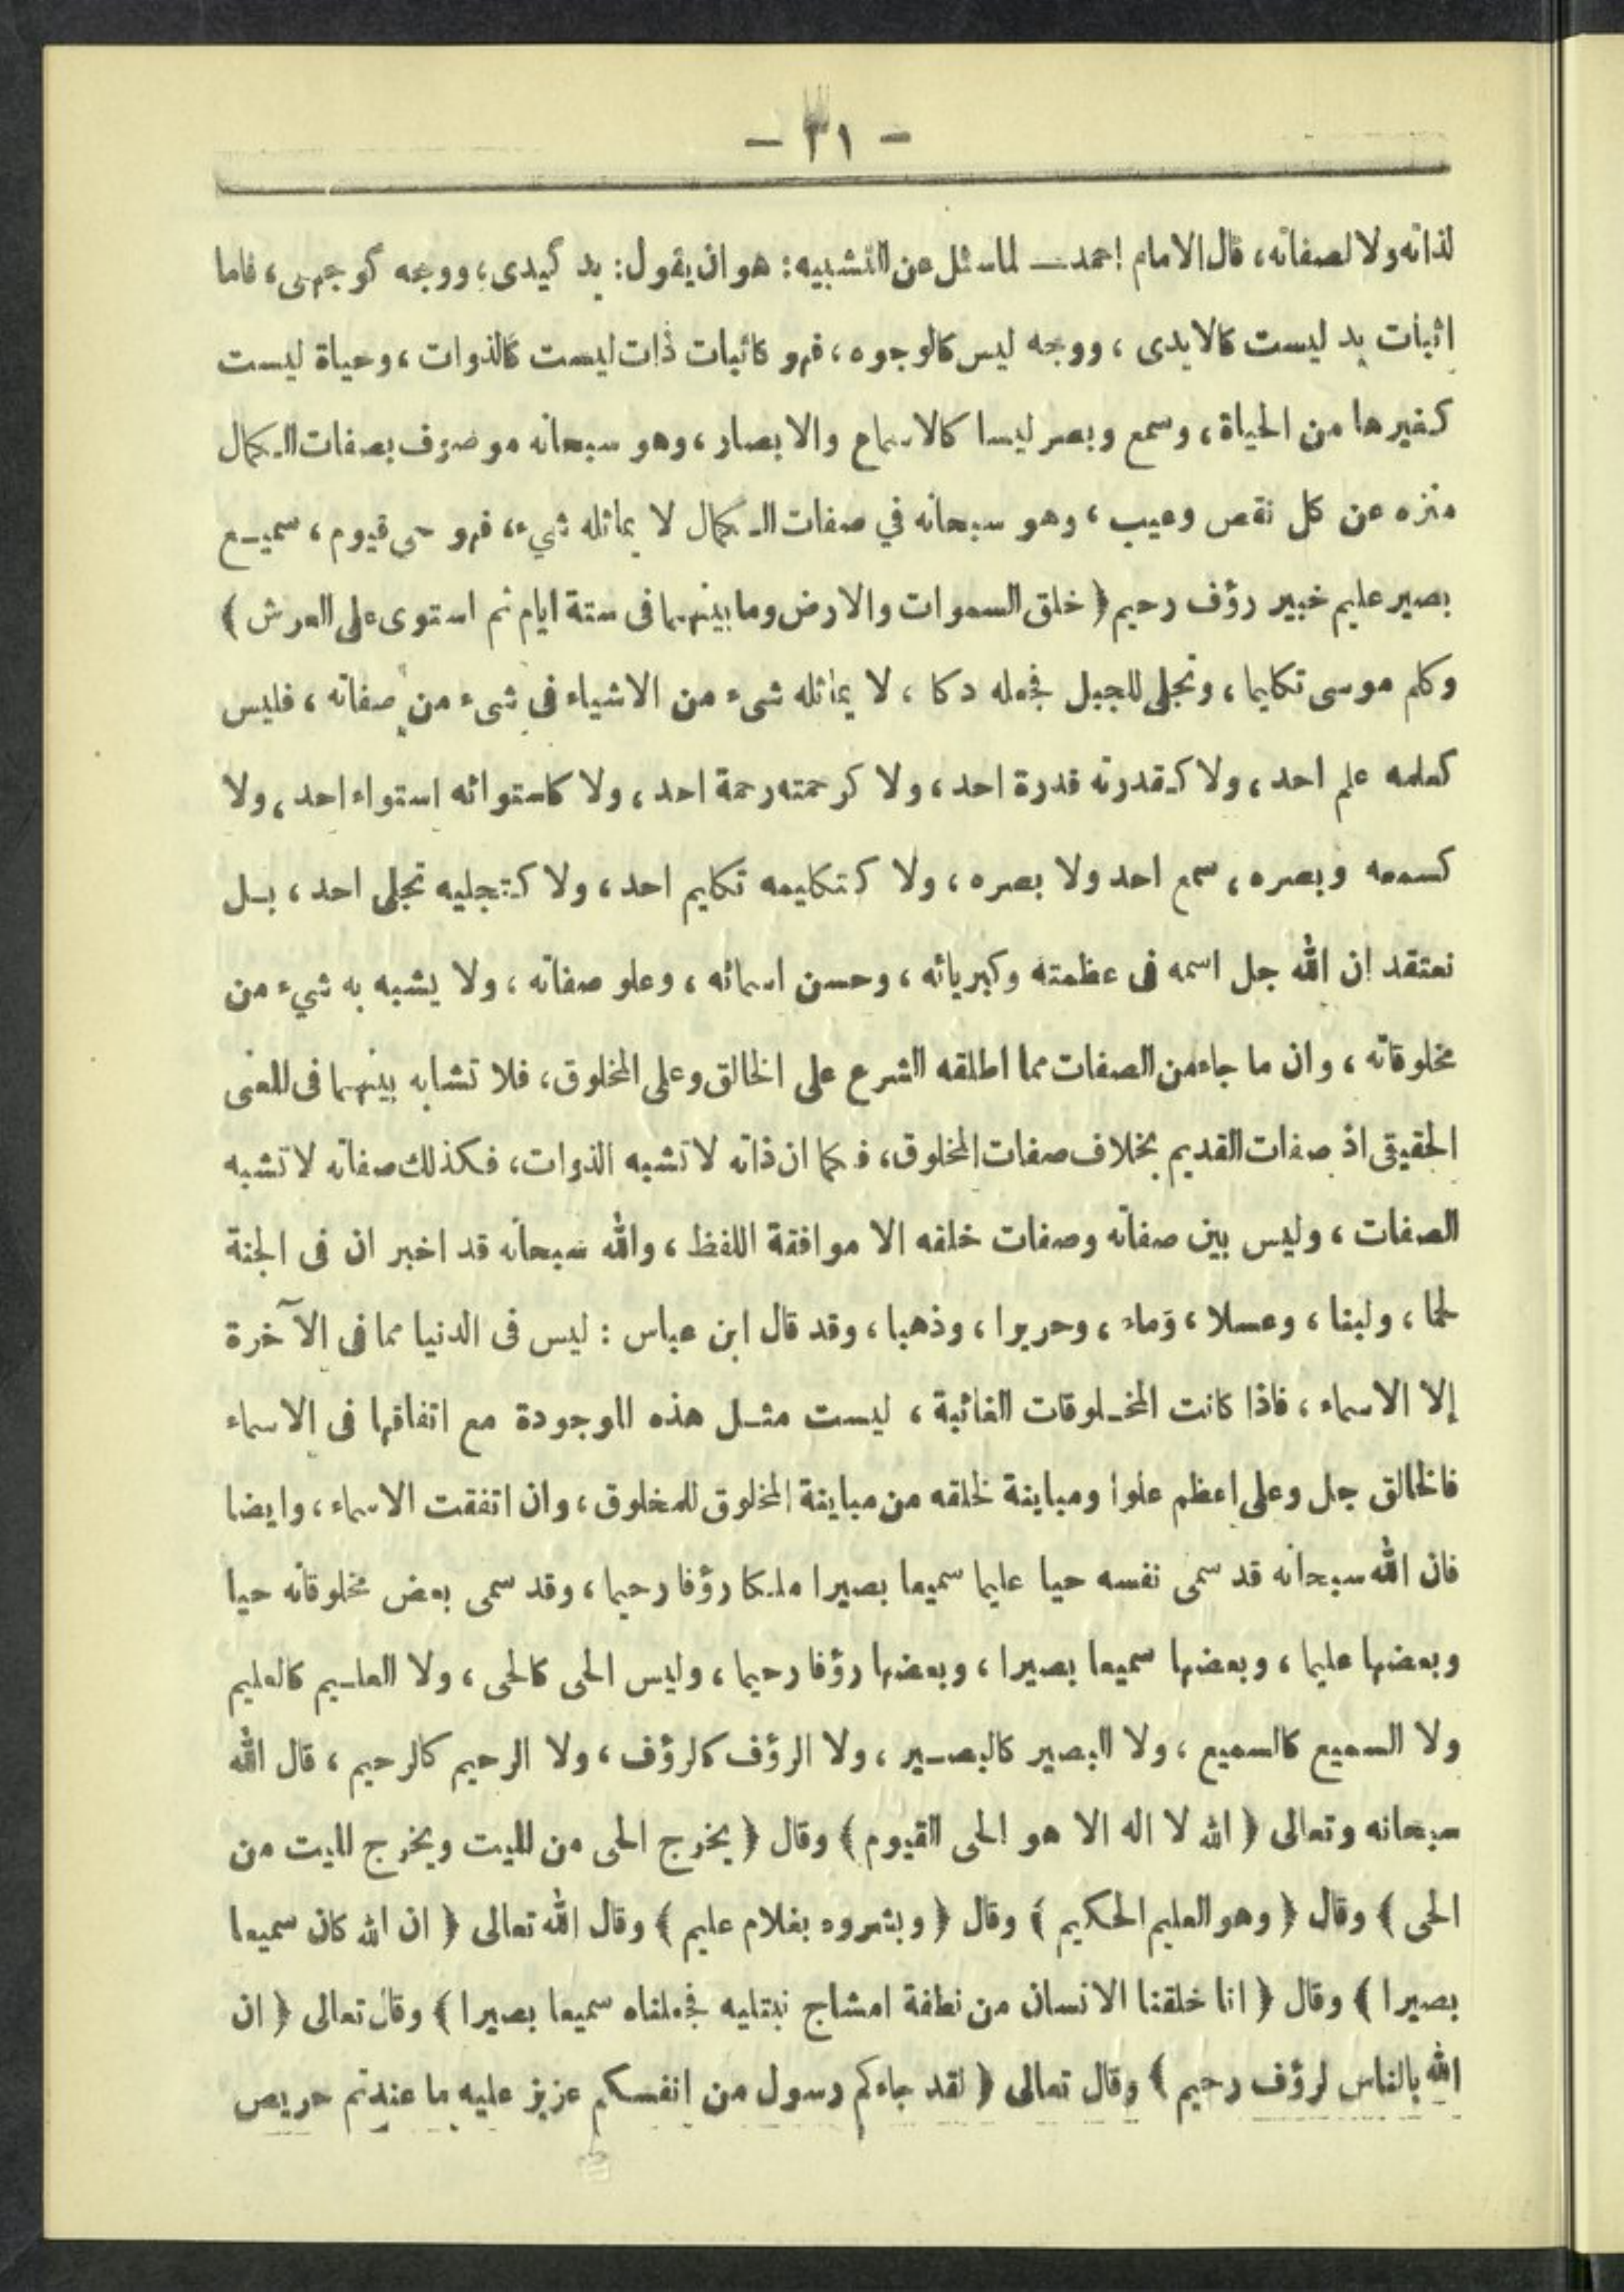 - ٣١ -
لذاته ولا لصفاته، قال الامام احمد ــ لما سئل عن التشبيه: هو ان يقول: يد كيدى، ووجه كوجهى، فاما
اثبات يد ليست كالايدى، ووجه ليس كالوجوه، فهو كاثبات ذات ليست كالذوات، وحياة ليست
كغيرها من الحياة، وسمع وبصر ليسا كالاسماع والابصار، وهو سبحانه موصوف بصفات الكمال
منزه عن كل نقص وعيب، وهو سبحانه في صفات الكمال لا يماثله شيء، فهو حى قيوم، سميع
بصير عليم خبير رؤف رحيم ﴿ خلق السموات والارض وما بينهما فى ستة ايام ثم استوى على العرش ﴾
وكلم موسى تكليما، وتجلى للجبل فجعله دكا، لا يماثله شىء من الاشياء فى شىء من صفاته، فليس
كعلمه علم احد، ولا كقدرته قدرة احد، ولا كرحمته رحمة احد، ولا كاستوائه استواء احد، ولا
كسمعه وبصره، سمع احد ولا بصره، ولا كتكليمه تكليم احد، ولا كتجليه تجلى احد، بل
نعتقد ان الله جل اسمه فى عظمته وكبريائه، وحسن اسمائه، وعلو صفاته، ولا يشبه به شيء من
مخلوقاته، وان ما جاء من الصفات مما اطلقه الشرع على الخالق وعلى المخلوق، فلا تشابه بينهما فى المعنى
الحقيقى اذ صفات القديم بخلاف صفات المخلوق، فكما ان ذاته لا تشبه الذوات، فكذلك صفاته لا تشبه
الصفات، وليس بين صفاته وصفات خلقه الا موافقة اللفظ، والله سبحانه قد اخبر ان فى الجنة
لحما، ولبنا، وعسلا، وماء، وحريرا، وذهبا، وقد قال ابن عباس: ليس فى الدنيا مما فى الآخرة
إلا الاسماء، فاذا كانت المخلوقات الغائبة، ليست مثل هذه الموجودة مع اتفاقها فى الاسماء
فالخالق جل وعلى اعظم علوا ومباينة لخلقه من مباينة المخلوق للمخلوق، وان اتفقت الاسماء، وايضا
فان الله سبحانه قد سمى نفسه حيا عليما سميعا بصيرا ملكا رؤفا رحيما، وقد سمى بعض مخلوقاته حيا
وبعضها عليما، وبعضها سميعا بصيرا، وبعضها رؤفا رحيما، وليس الحى كالحى، ولا العليم كالعليم
ولا السميع كالسميع، ولا البصير كالبصير، ولا الرؤف كالرؤف، ولا الرحيم كالرحيم، قال الله
سبحانه وتعالى ﴿ الله لا اله الا هو الحى القيوم ﴾ وقال ﴿ يخرج الحى من الميت ويخرج الميت من
الحى ﴾ وقال ﴿ وهو العليم الحكيم ﴾ وقال ﴿ وبشروه بغلام عليم ﴾ وقال الله تعالى ﴿ ان الله كان سميعا
بصيرا ﴾ وقال ﴿ انا خلقنا الانسان من نطفة امشاج نبتليه فجعلناه سميعا بصيرا ﴾ وقال تعالى ﴿ ان
الله بالناس لرؤف رحيم ﴾ وقال تعالى ﴿ لقد جاءكم رسول من انفسكم عزيز عليه ما عنتم حريص